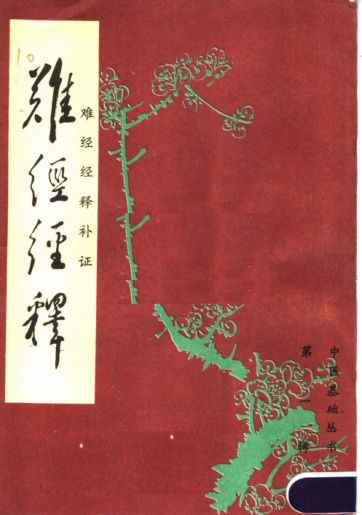 難經經釋
难经经释补证
中医基础丛书
第辑